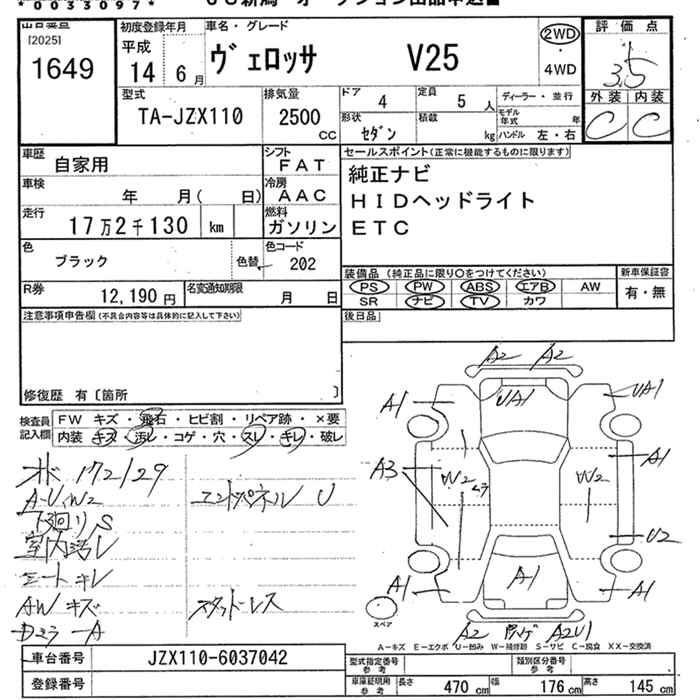 *0033097*
出品番号 初度登録年月 車名・グレード 2WD 評価点
[2025] 平成 ヴェロッサ V25 ・
1649 14年6月 4WD 3.5
型式 排気量 ドア 4 定員 5人 ディーラー・並行 外装 内装
TA-JZX110 2500cc 形状 セダン 積載 kg モデル年式 年 C C
ハンドル 左・右
車歴 自家用 シフト FAT セールスポイント(正常に機能するものに限ります)
車検 年 月( 日) 冷房 AAC 純正ナビ
走行 17万2千130 km 燃料 ガソリン HIDヘッドライト
ETC
色 ブラック 色替 色コード 202
装備品(純正品に限り○をつけてください) 新車保証書
R券 12,190円 名変通知期限 月 日 PS PW ABS エアB AW 有・無
SR ナビ TV カワ
注意事項申告欄(不具合内容等は具体的に記入して下さい) 後日品
修復歴 有〔箇所 〕
検査員記入欄 FW キズ・飛石・ヒビ割・リペア跡・×要
内装 キズ・汚レ・コゲ・穴・スレ・キレ・破レ
A2 A2
A1 UA1 UA1
A3 W2 ムラ W2 A1
U2
A1 A1 A1
A2 A2U1
スペア
172129
A・U、W2 エンドパネル U
下廻りS
室内汚レ
シートキレ
AWキズ スタッドレス
A-キズ E-エクボ U-凹み W-補修跡 S-サビ C-腐食 XX-交換済
車台番号 JZX110-6037042 型式指定番号 参考 類別区分番号 参考
登録番号 車庫証明用 参考 長さ 470cm 幅 176cm 高さ 145cm